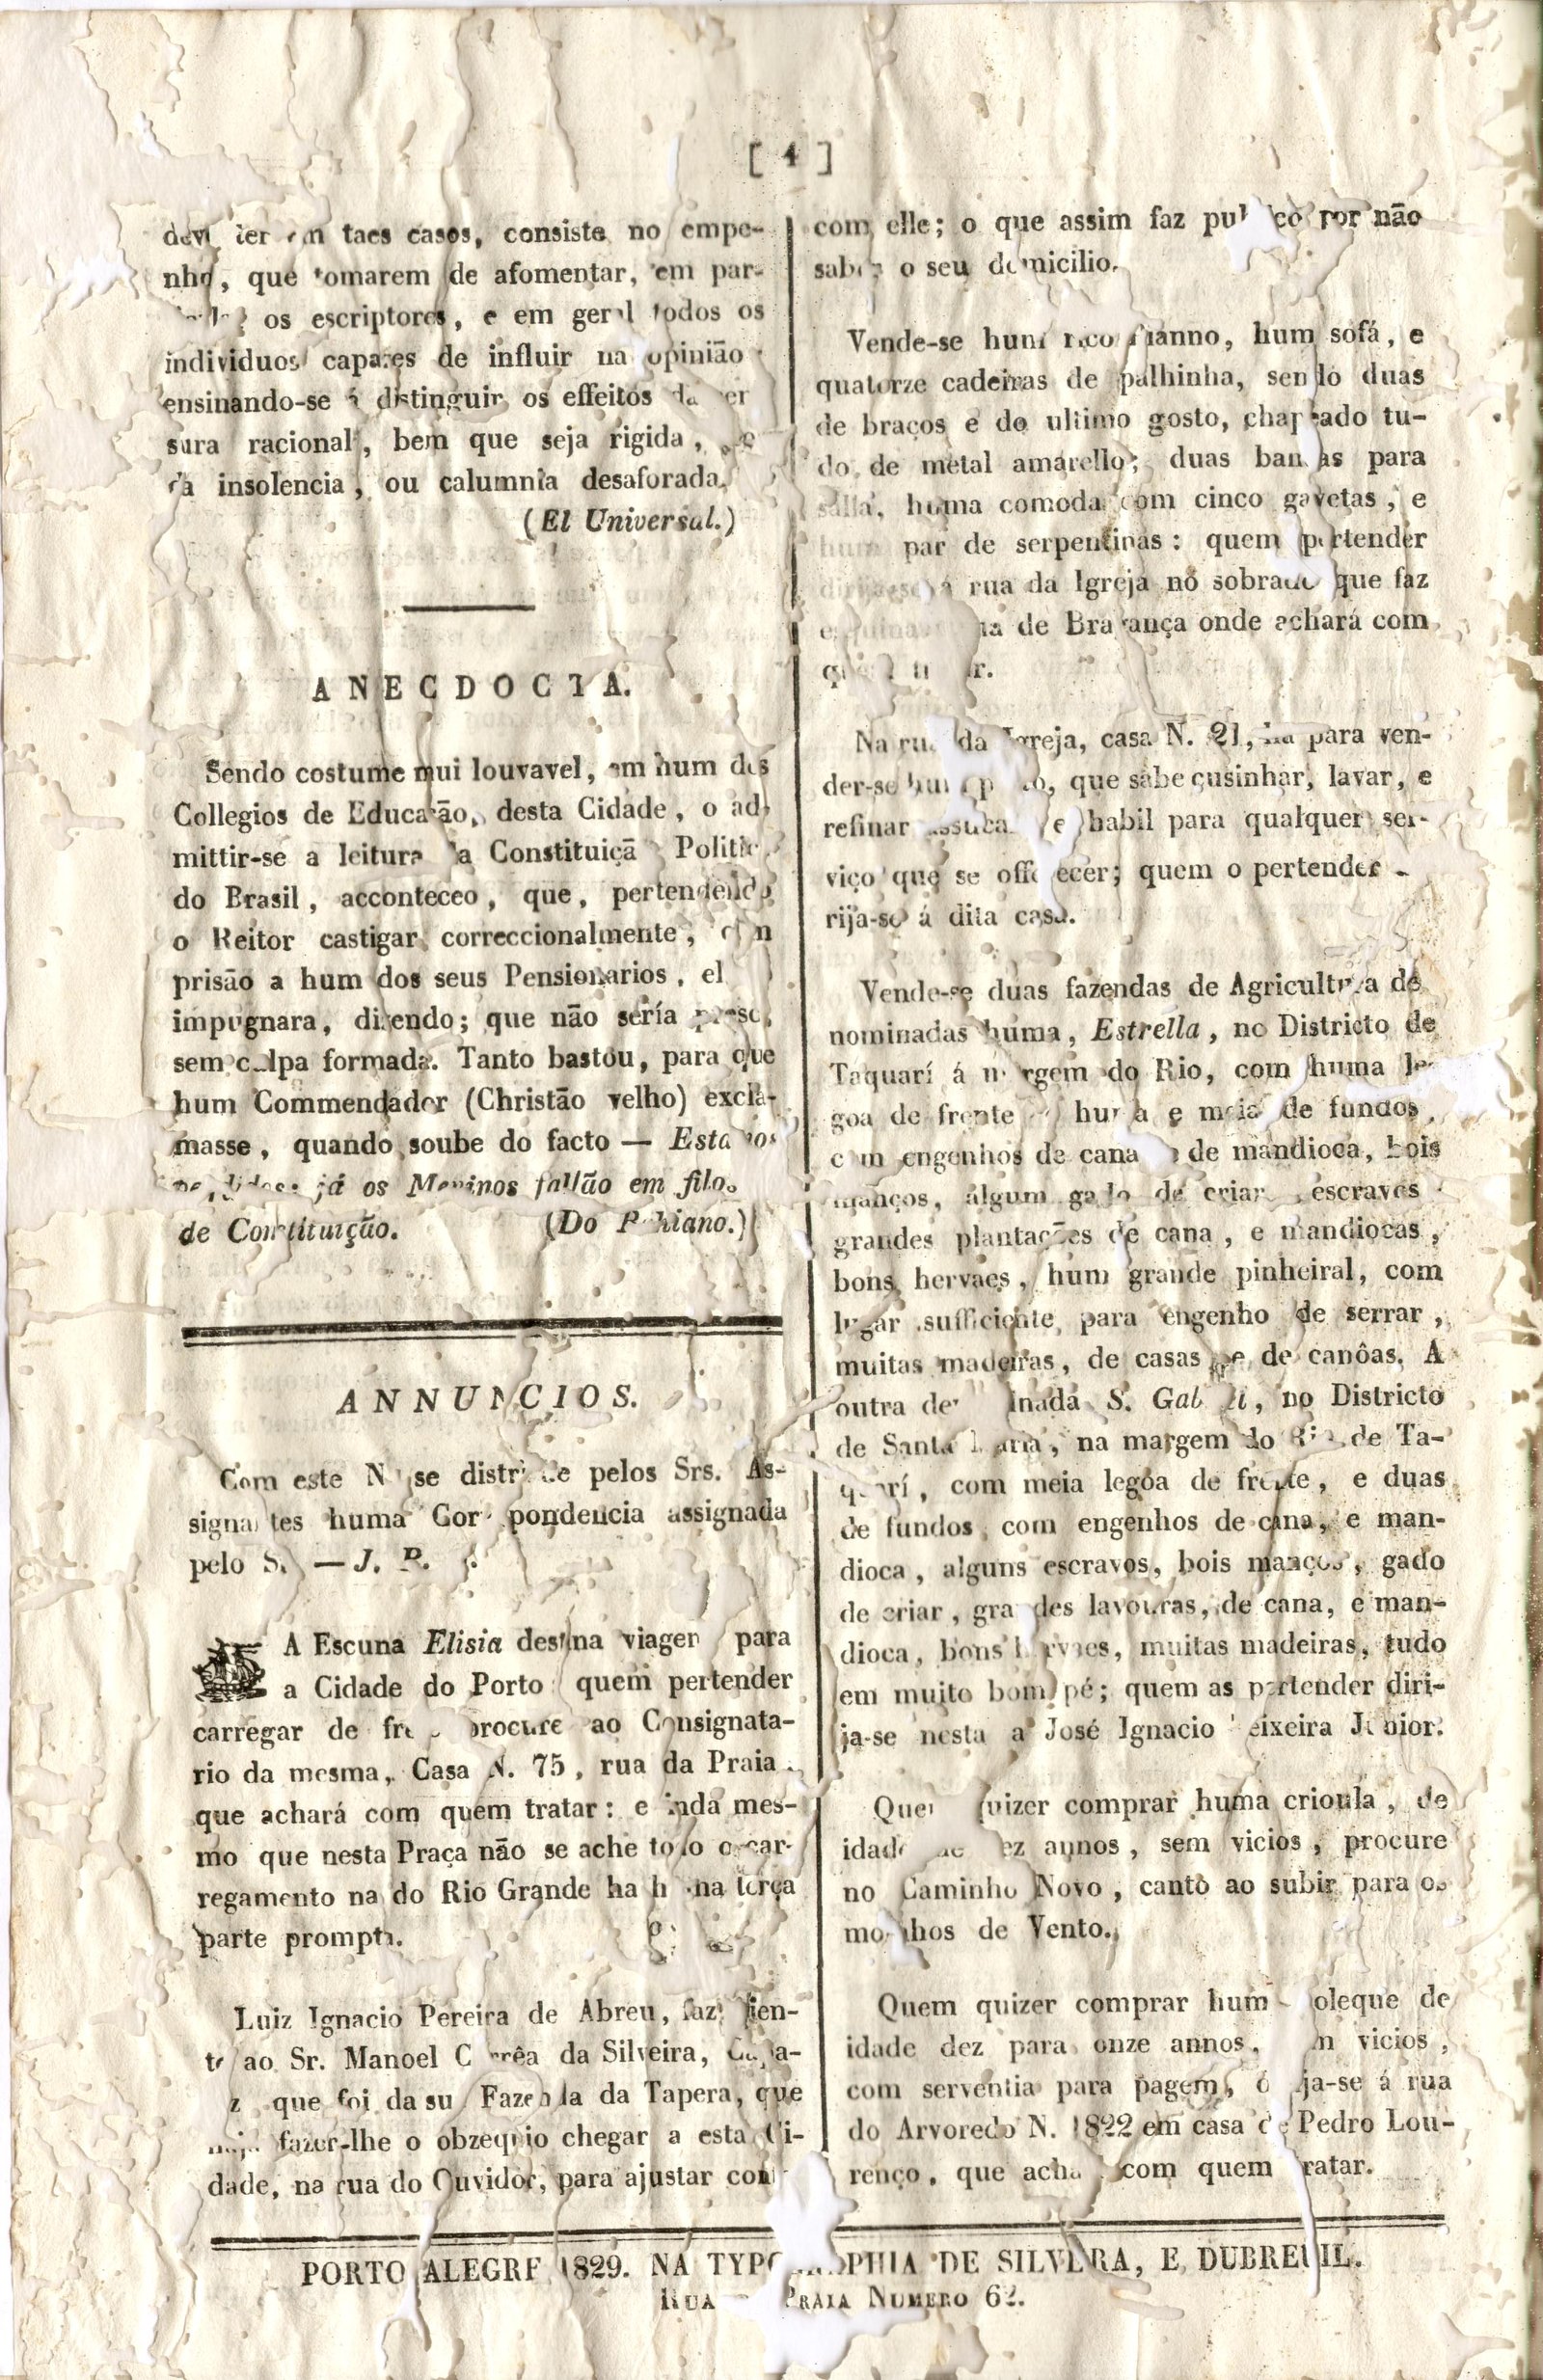 [ 4 ]
taes casos, consiste no empe-
nho, que tomarem de afomentar, em par-
os escriptores, e em geral todos os
individuos capazes de influir na opinião
ensinando-se á distinguir os effeitos da
sura racional, bem que seja rigida,
da insolencia, ou calumnia desaforada.
(El Universal.)
ANECDOCTA.
Sendo costume mui louvavel, em hum dos
Collegios de Educação, desta Cidade, o ad-
mittir-se a leitura da Constituição Politica
do Brasil, acconteceo, que, pertendendo
o Reitor castigar correccionalmente, com
prisão a hum dos seus Pensionarios,
impugnara, dizendo; que não sería preso,
sem culpa formada. Tanto bastou, para que
hum Commendador (Christão velho) excla-
masse, quando soube do facto — Estamos
perdidos: já os Meninos fallão em
de Constituição. (Do Bahiano.)
ANNUNCIOS.
Com este N. se distribue pelos Srs. As-
signantes huma Correspondencia assignada
pelo Sr. — J.
A Escuna Elisia destina viagem para
a Cidade do Porto quem pertender
carregar de frete procure ao Consignata-
rio da mesma, Casa N. 75, rua da Praia
que achará com quem tratar: e inda mes-
mo que nesta Praça não se ache todo o car-
regamento na do Rio Grande ha huma terça
parte prompta.
Luiz Ignacio Pereira de Abreu, faz sien-
te ao Sr. Manoel Corrêa da Silveira, Capa-
z que foi da sua Fazenda da Tapera, que
haja fazer-lhe o obzequio chegar a esta Ci-
dade, na rua do Ouvidor, para ajustar contas
com elle; o que assim faz publico por não
saber o seu domicilio.
Vende-se hum rico pianno, hum sofá, e
quatorze cadeiras de palhinha, sendo duas
de braços e do ultimo gosto, chapeado tu-
do de metal amarello; duas bancas para
salla, huma comoda com cinco gavetas, e
hum par de serpentinas: quem pertender
dirija-se á rua da Igreja no sobrado que faz
esquina rua de Bragança onde achará com
quem tratar.
Na rua da Igreja, casa N. 21, ha para ven-
der-se hum preto, que sabe cusinhar, lavar, e
refinar assucar e habil para qualquer ser-
viço que se offerecer; quem o pertender
rija-se á dita casa.
Vende-se duas fazendas de Agricultura de
nominadas huma, Estrella, no Districto de
Taquarí á margem do Rio, com huma le-
goa de frente huma e meia de fundos,
com engenhos de cana e de mandioca, bois
manços, algum gado de criar, escravos
grandes plantações de cana, e mandiocas,
bons hervaes, hum grande pinheiral, com
lugar sufficiente para engenho de serrar,
muitas madeiras, de casas e de canôas. A
outra denominada S. Gabriel, no Districto
de Santa Maria, na margem do Rio de Ta-
quarí, com meia legoa de frente, e duas
de fundos, com engenhos de cana, e man-
dioca, alguns escravos, bois manços, gado
de criar, grandes lavouras, de cana, e man-
dioca, bons hervaes, muitas madeiras, tudo
em muito bom pé; quem as pertender diri-
ja-se nesta a José Ignacio Teixeira Junior.
Quem quizer comprar huma crioula, de
idade de dez annos, sem vicios, procure
no Caminho Novo, canto ao subir para os
moinhos de Vento.
Quem quizer comprar hum moleque de
idade dez para onze annos, sem vicios,
com serventia para pagem, dirija-se á rua
do Arvoredo N. 1822 em casa de Pedro Lou-
renço, que achará com quem tratar.
PORTO ALEGRE 1829. NA TYPOGRAPHIA DE SILVEIRA, E DUBREUIL.
RUA PRAIA NUMERO 62.